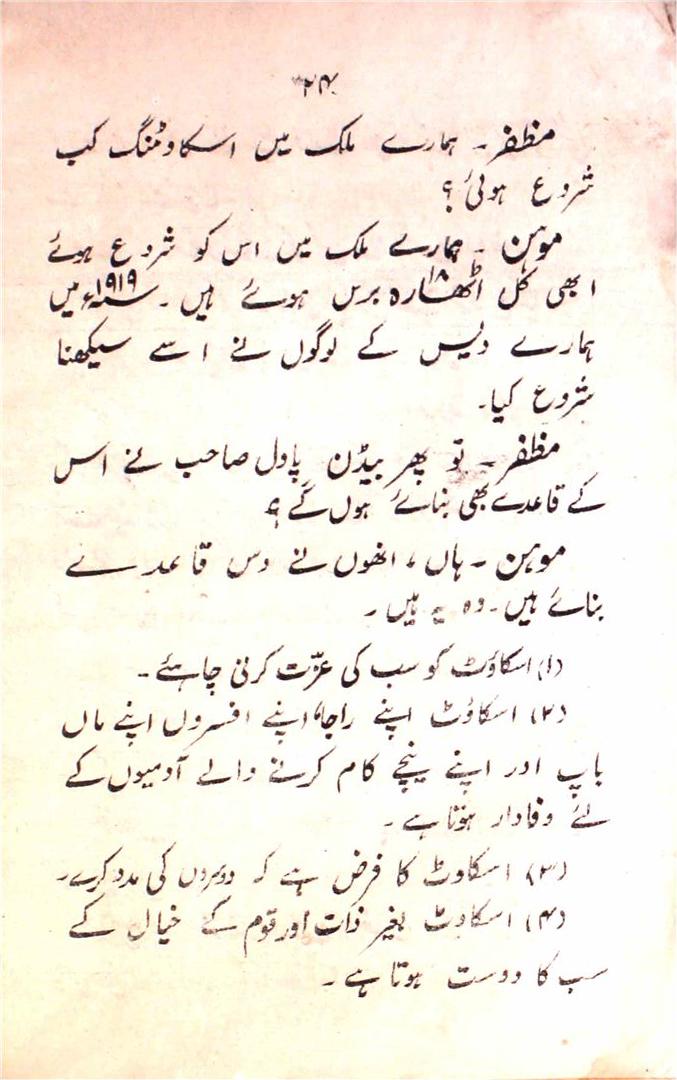 ۲۴
مظفر۔ ہمارے ملک میں اسکاوٹنگ کب
شروع ہوئی؟
موہن۔ ہمارے ملک میں اس کو شروع ہوئے
ابھی کل اٹھارہ ۱۸ برس ہوئے ہیں۔ ۱۹۱۹ء میں
ہمارے دیس کے لوگوں نے اسے سیکھنا
شروع کیا۔
مظفر۔ تو پھر بیڈن پاول صاحب نے اس
کے قاعدے بھی بنائے ہوں گے؟
موہن۔ ہاں، انھوں نے دس قاعدے
بنائے ہیں۔ وہ یہ ہیں۔
(۱) اسکاؤٹ کو سب کی عزّت کرنی چاہئے۔
(۲) اسکاؤٹ اپنے راجا، اپنے افسروں اپنے ماں
باپ اور اپنے نیچے کام کرنے والے آدمیوں کے
لئے وفادار ہوتا ہے۔
(۳) اسکاوٹ کا فرض ہے کہ دوسروں کی مدد کرے۔
(۴) اسکاوٹ بغیر ذات اور قوم کے خیال کے
سب کا دوست ہوتا ہے۔